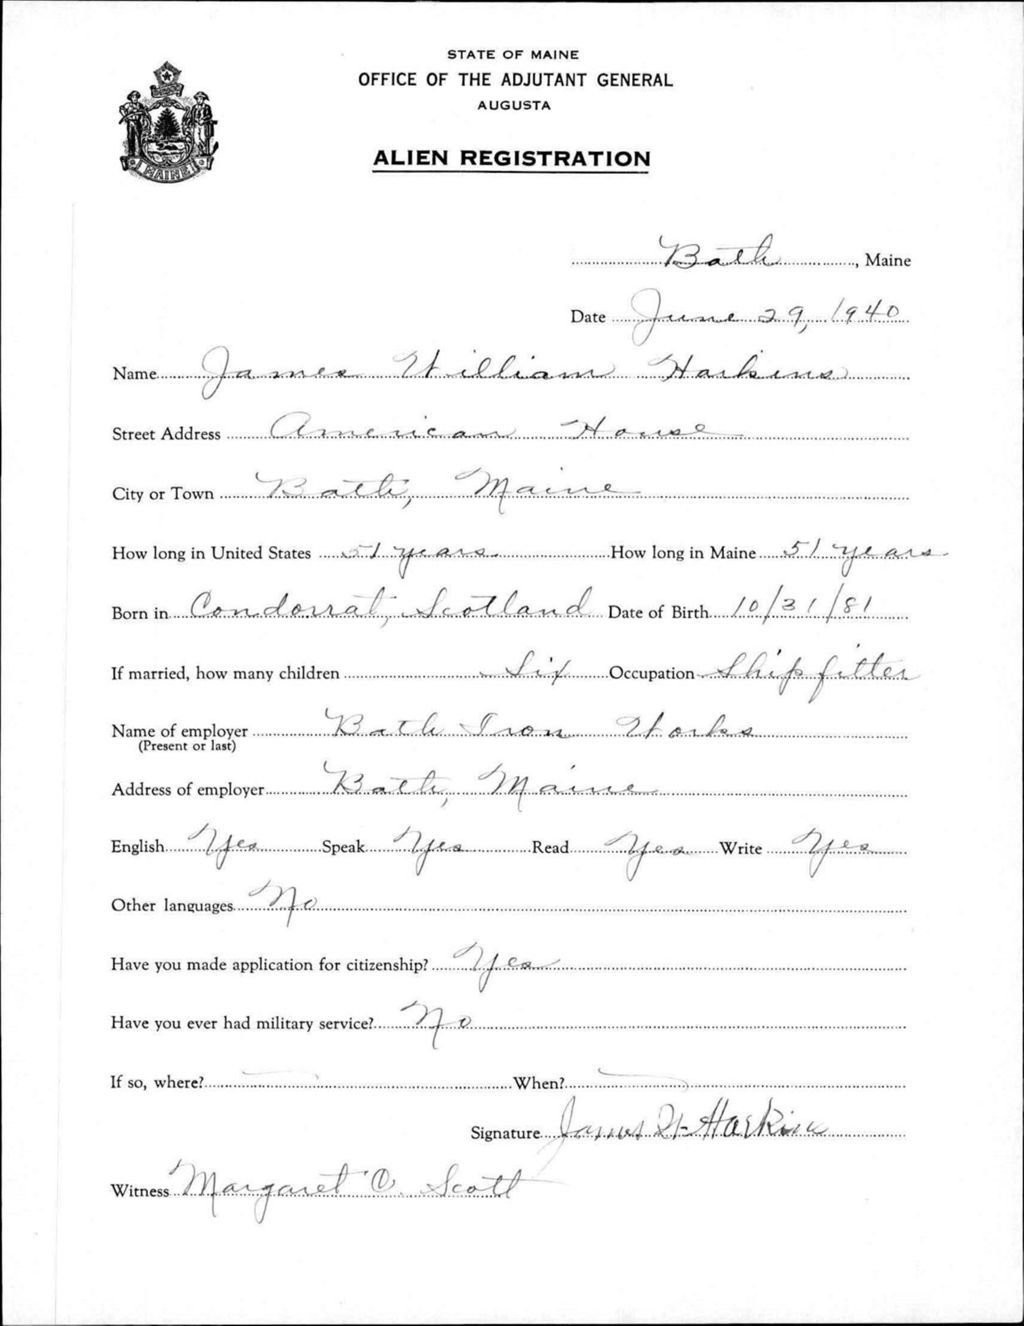 STATE OF MAINE
OFFICE OF THE ADJUTANT GENERAL
AUGUSTA
ALIEN REGISTRATION
MAINE
Bath, Maine
Date June 29, 1940
Name James William Harkins
Street Address American House
City or Town Bath, Maine
How long in United States 51 years How long in Maine 51 years
Born in Condorrat, Scotland Date of Birth 10/31/81
If married, how many children Six Occupation Ship fitter
Name of employer Bath Iron Works
(Present or last)
Address of employer Bath, Maine
English Yes Speak Yes Read Yes Write Yes
Other languages No
Have you made application for citizenship? Yes
Have you ever had military service? No
If so, where? When?
Signature James W Harkins
Witness Margaret C. Scott